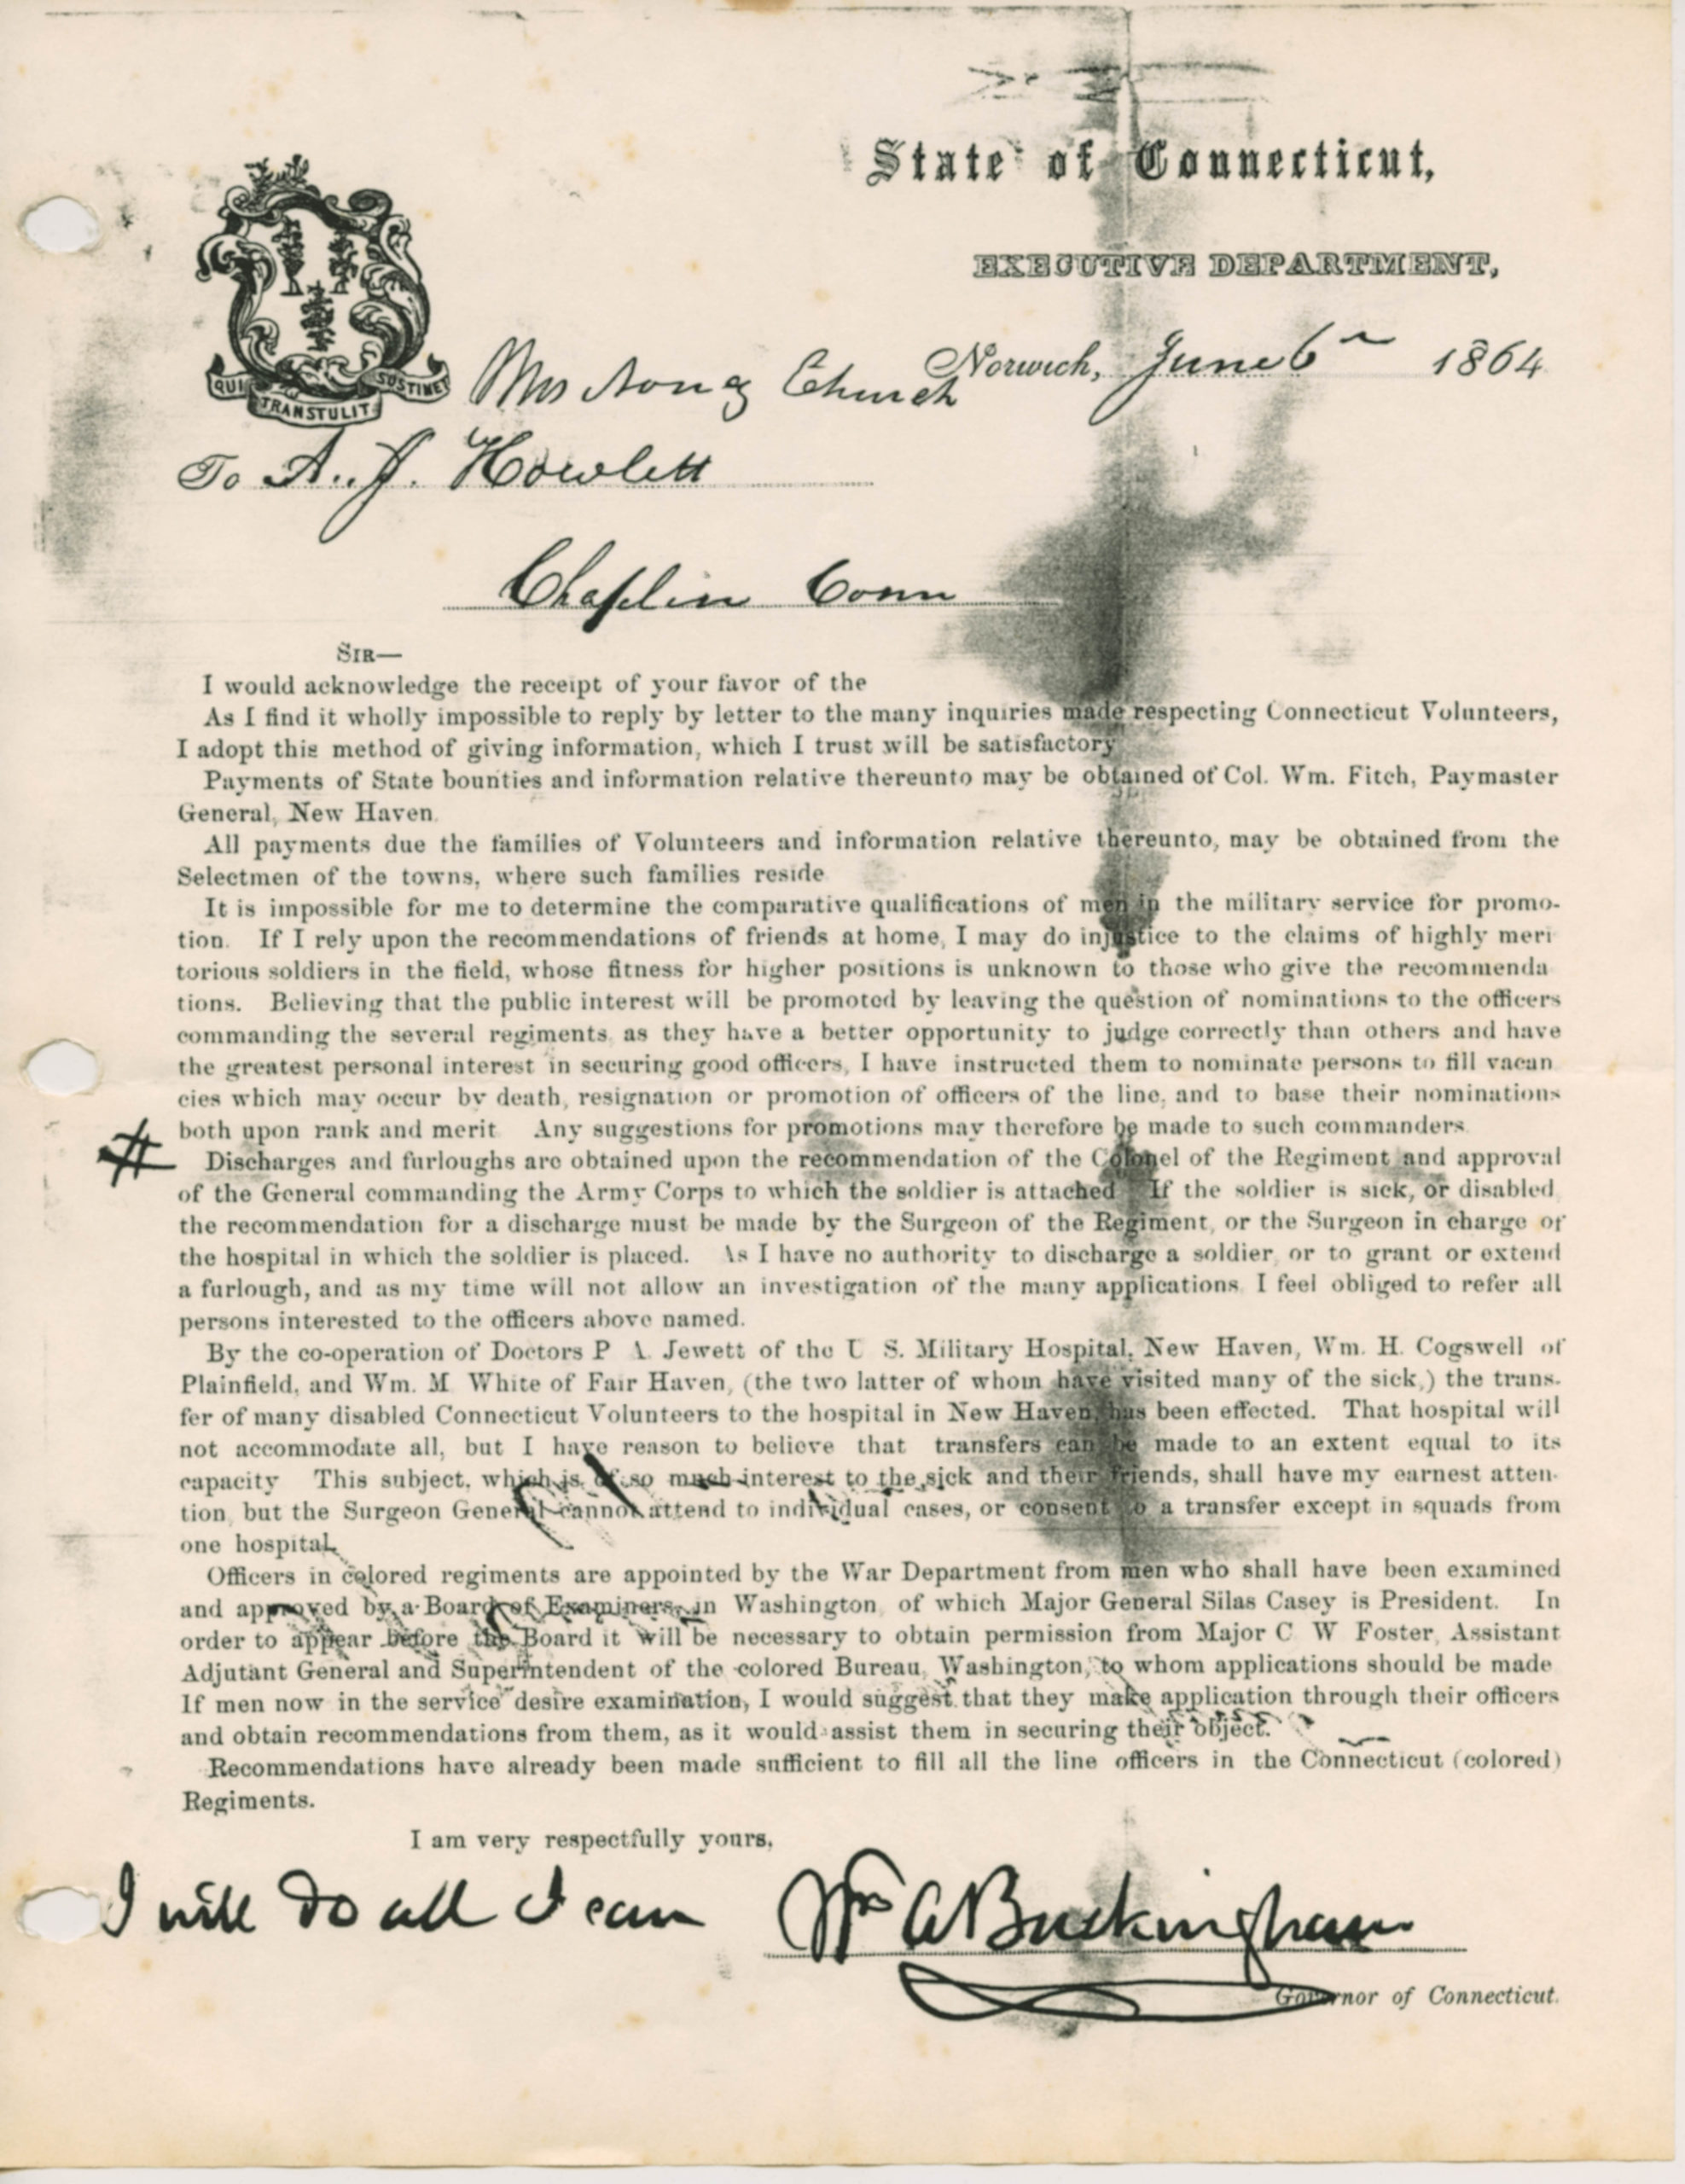 State of Connecticut,
EXECUTIVE DEPARTMENT,
QUI TRANSTULIT SUSTINET
Norwich, June 6th 1864
Mrs Church
To A. J. Howlett
Chaplin Conn
SIR—
I would acknowledge the receipt of your favor of the
As I find it wholly impossible to reply by letter to the many inquiries made respecting Connecticut Volunteers,
I adopt this method of giving information, which I trust will be satisfactory
Payments of State bounties and information relative thereunto may be obtained of Col. Wm. Fitch, Paymaster
General, New Haven.
All payments due the families of Volunteers and information relative thereunto, may be obtained from the
Selectmen of the towns, where such families reside
It is impossible for me to determine the comparative qualifications of men in the military service for promo-
tion. If I rely upon the recommendations of friends at home, I may do injustice to the claims of highly meri
torious soldiers in the field, whose fitness for higher positions is unknown to those who give the recommenda
tions. Believing that the public interest will be promoted by leaving the question of nominations to the officers
commanding the several regiments, as they have a better opportunity to judge correctly than others and have
the greatest personal interest in securing good officers, I have instructed them to nominate persons to fill vacan
cies which may occur by death, resignation or promotion of officers of the line, and to base their nominations
both upon rank and merit Any suggestions for promotions may therefore be made to such commanders
# Discharges and furloughs are obtained upon the recommendation of the Colonel of the Regiment and approval
of the General commanding the Army Corps to which the soldier is attached If the soldier is sick, or disabled
the recommendation for a discharge must be made by the Surgeon of the Regiment, or the Surgeon in charge of
the hospital in which the soldier is placed. As I have no authority to discharge a soldier, or to grant or extend
a furlough, and as my time will not allow an investigation of the many applications, I feel obliged to refer all
persons interested to the officers above named.
By the co-operation of Doctors P A. Jewett of the U S. Military Hospital, New Haven, Wm. H. Cogswell of
Plainfield, and Wm. M White of Fair Haven, (the two latter of whom have visited many of the sick,) the trans-
fer of many disabled Connecticut Volunteers to the hospital in New Haven, has been effected. That hospital will
not accommodate all, but I have reason to believe that transfers can be made to an extent equal to its
capacity This subject, which is of so much interest to the sick and their friends, shall have my earnest atten-
tion, but the Surgeon General cannot attend to individual cases, or consent to a transfer except in squads from
one hospital.
Officers in colored regiments are appointed by the War Department from men who shall have been examined
and approved by a Board of Examiners, in Washington, of which Major General Silas Casey is President. In
order to appear before the Board it will be necessary to obtain permission from Major C W Foster, Assistant
Adjutant General and Superintendent of the colored Bureau, Washington, to whom applications should be made
If men now in the service desire examination, I would suggest that they make application through their officers
and obtain recommendations from them, as it would assist them in securing their object.
Recommendations have already been made sufficient to fill all the line officers in the Connecticut (colored)
Regiments.
I am very respectfully yours,
I will do all I can Wm A Buckingham
Governor of Connecticut.